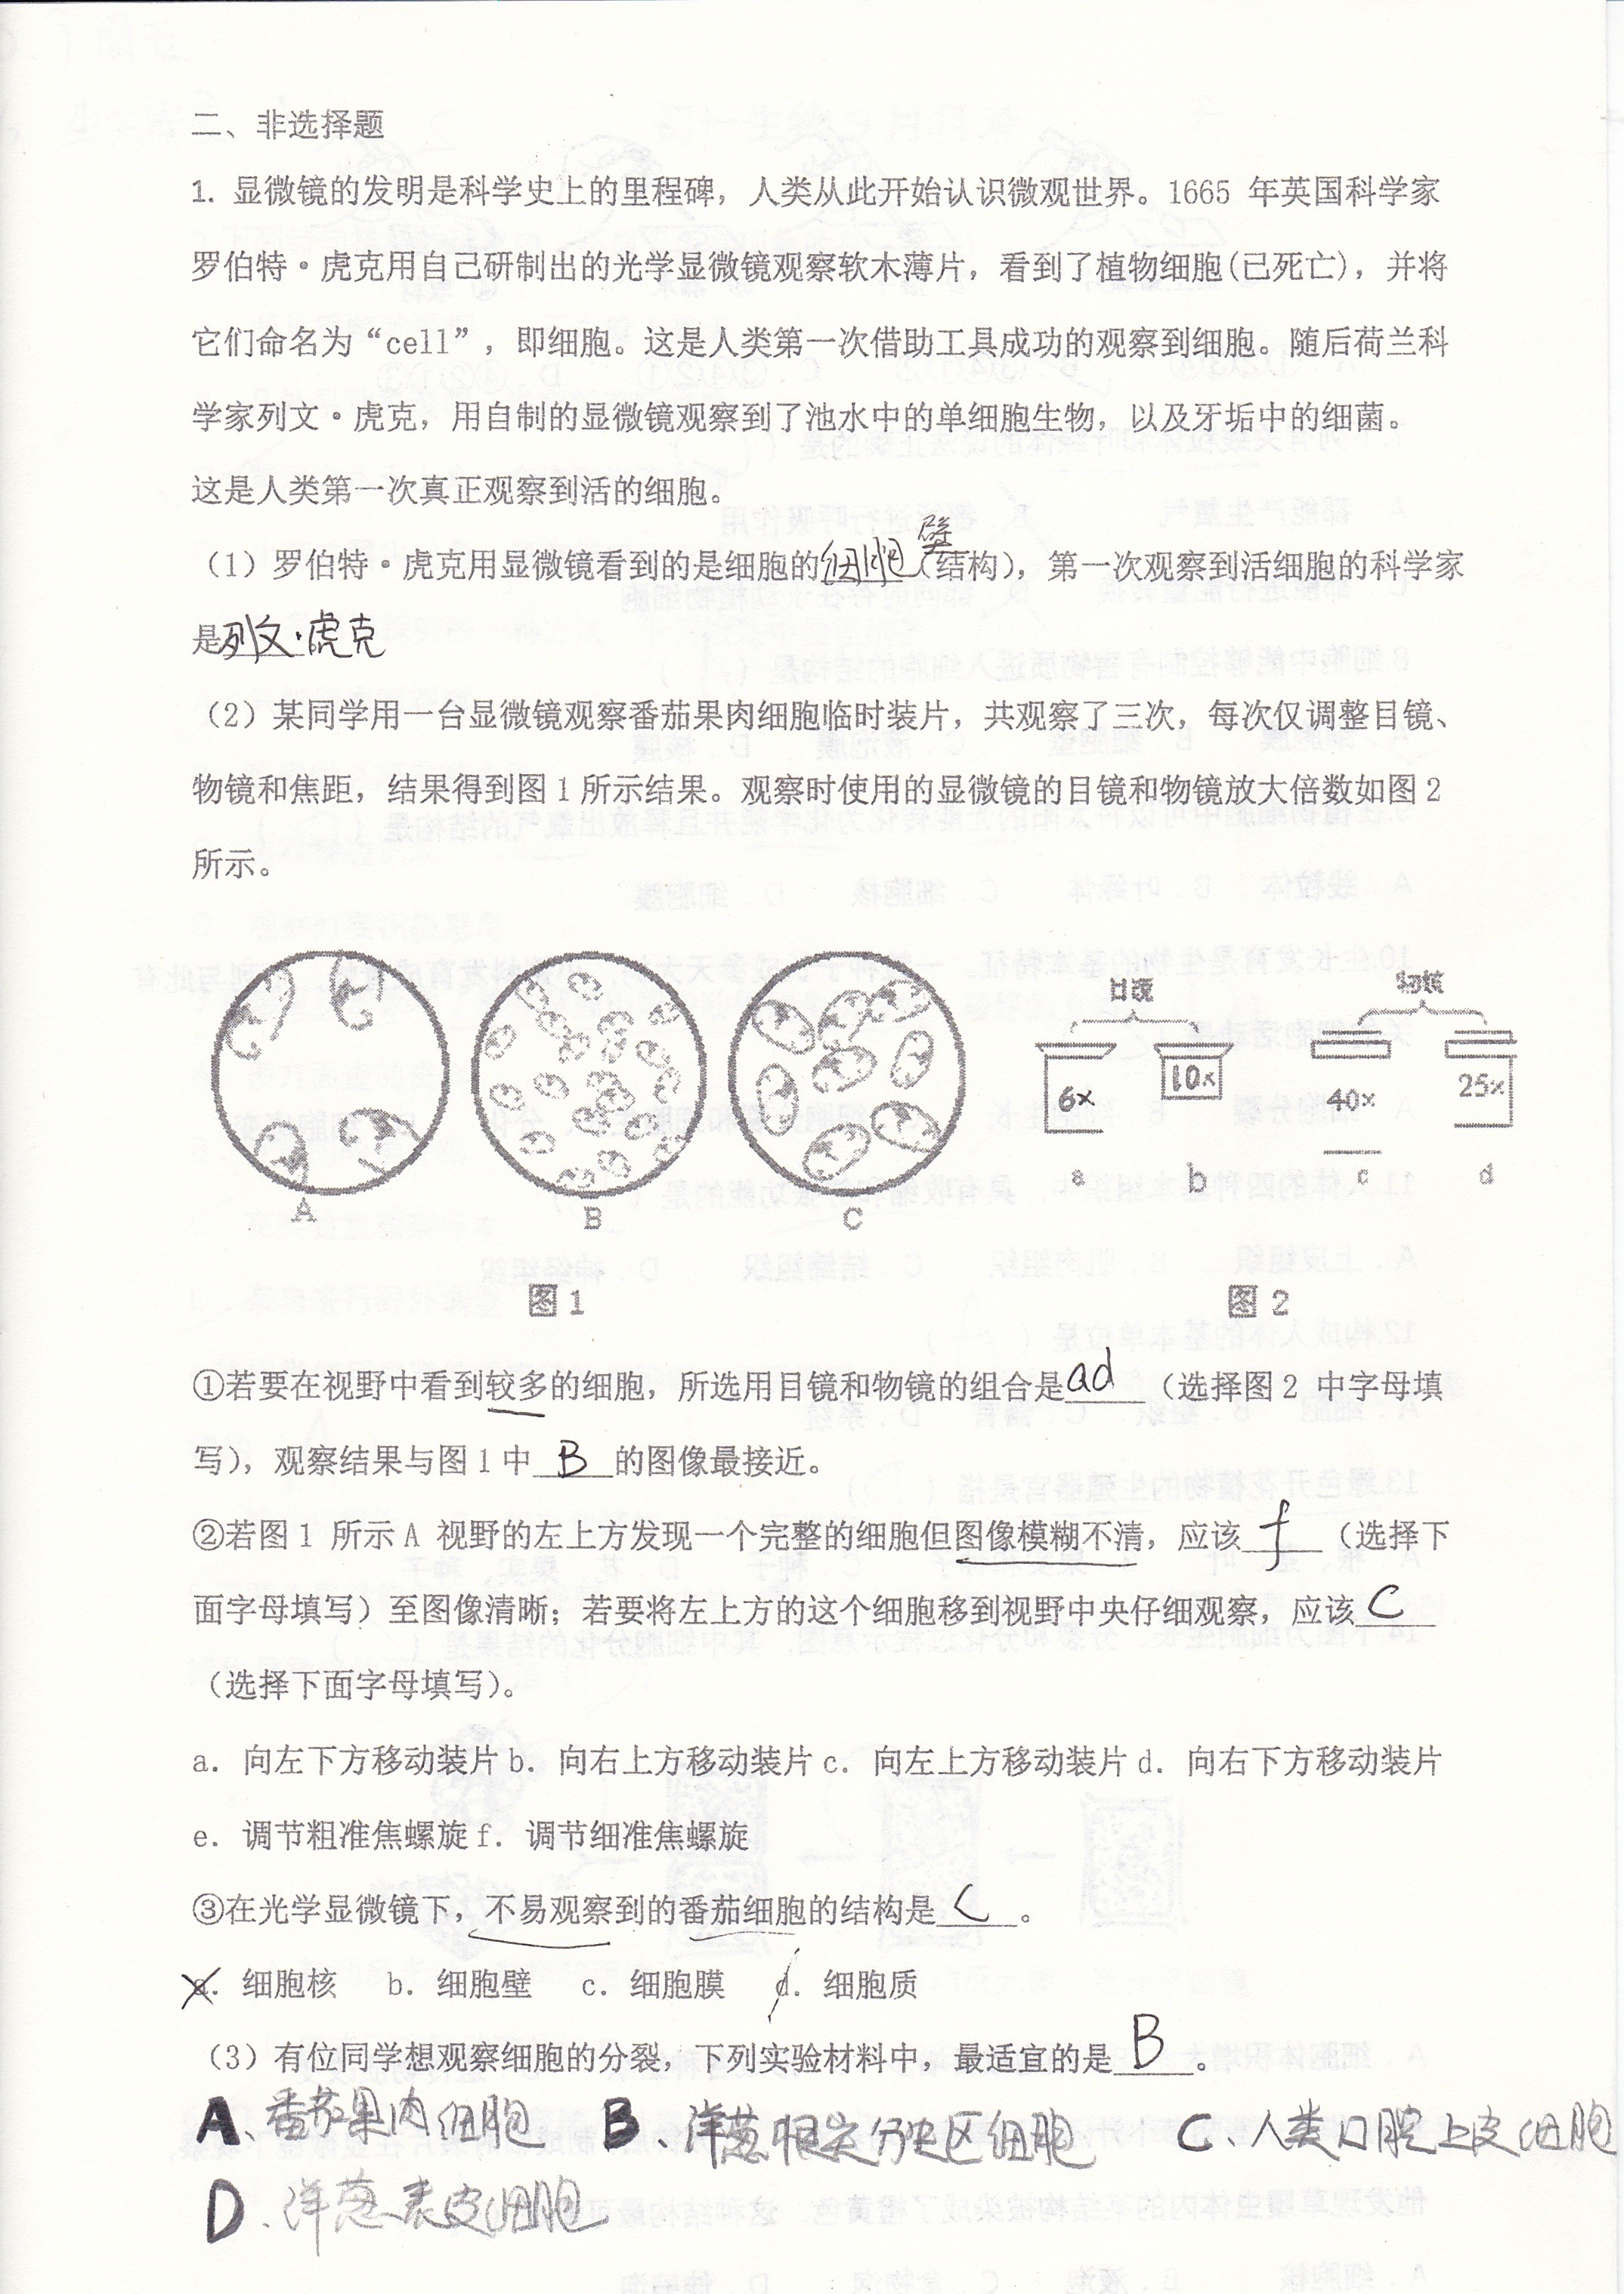 二、非选择题
1. 显微镜的发明是科学史上的里程碑，人类从此开始认识微观世界。1665 年英国科学家
罗伯特·虎克用自己研制出的光学显微镜观察软木薄片，看到了植物细胞(已死亡)，并将
它们命名为“cell”，即细胞。这是人类第一次借助工具成功的观察到细胞。随后荷兰科
学家列文·虎克，用自制的显微镜观察到了池水中的单细胞生物，以及牙垢中的细菌。
这是人类第一次真正观察到活的细胞。
（1）罗伯特·虎克用显微镜看到的是细胞的细胞壁（结构），第一次观察到活细胞的科学家
是列文·虎克
（2）某同学用一台显微镜观察番茄果肉细胞临时装片，共观察了三次，每次仅调整目镜、
物镜和焦距，结果得到图1所示结果。观察时使用的显微镜的目镜和物镜放大倍数如图2
所示。
目镜 物镜
6× 10× 40× 25×
a b c d
A B C
图1 图2
①若要在视野中看到较多的细胞，所选用目镜和物镜的组合是ad（选择图2 中字母填
写），观察结果与图1中B的图像最接近。
②若图1 所示A 视野的左上方发现一个完整的细胞但图像模糊不清，应该f（选择下
面字母填写）至图像清晰；若要将左上方的这个细胞移到视野中央仔细观察，应该C
（选择下面字母填写）。
a. 向左下方移动装片b. 向右上方移动装片c. 向左上方移动装片d. 向右下方移动装片
e. 调节粗准焦螺旋f. 调节细准焦螺旋
③在光学显微镜下，不易观察到的番茄细胞的结构是C。
a. 细胞核 b. 细胞壁 c. 细胞膜 d. 细胞质
（3）有位同学想观察细胞的分裂，下列实验材料中，最适宜的是B。
A、番茄果肉细胞 B、洋葱根尖分生区细胞 C、人类口腔上皮细胞
D、洋葱表皮细胞